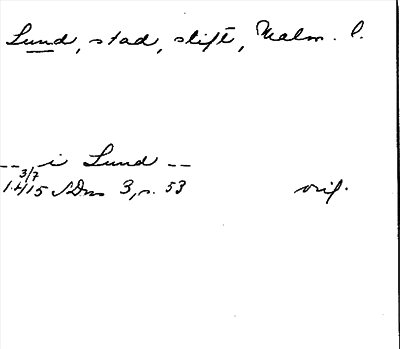 Lund, stad, stift, Malm. l.
-- i Lund --
3/7
1415 SDns 3, s. 53 orig.